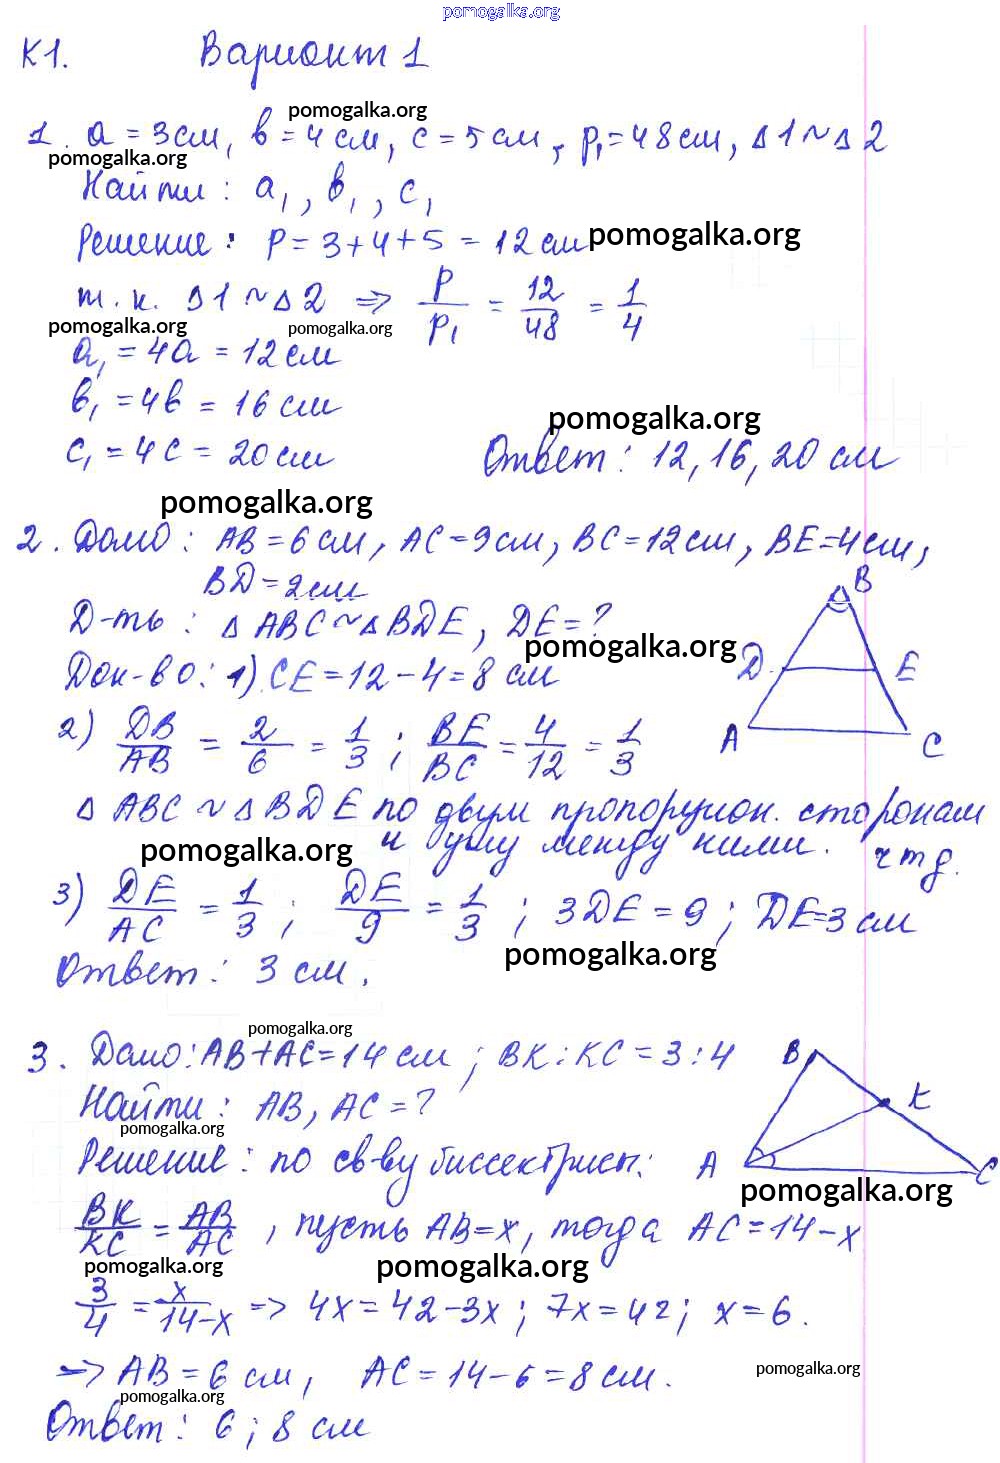 pomogalka.org
К1. Вариант 1
pomogalka.org
1. a = 3 см, в = 4 см, c = 5 см, p₁ = 48 см, Δ1 ~ Δ2
pomogalka.org
Найти: a₁, в₁, c₁
Решение: P = 3 + 4 + 5 = 12 см pomogalka.org
т. к. Δ1 ~ Δ2 => P/P₁ = 12/48 = 1/4
pomogalka.org pomogalka.org
a₁ = 4a = 12 см
в₁ = 4в = 16 см
pomogalka.org
c₁ = 4c = 20 см Ответ: 12, 16, 20 см
pomogalka.org
2. Дано: AB = 6 см, AC = 9 см, BC = 12 см, BE = 4 см,
BD = 2 см
B
Д-ть: Δ ABC ~ Δ BDE, DE = ?
pomogalka.org
Док-во: 1) CE = 12 - 4 = 8 см
D E
2) DB/AB = 2/6 = 1/3 ; BE/BC = 4/12 = 1/3
A C
Δ ABC ~ Δ BDE по двум пропорцион. сторонам
и углу между ними. чтд.
pomogalka.org
3) DE/AC = 1/3 ; DE/9 = 1/3 ; 3DE = 9 ; DE = 3 см
pomogalka.org
Ответ: 3 см.
pomogalka.org
3. Дано: AB + AC = 14 см ; BK : KC = 3 : 4
B K
Найти: AB, AC = ?
pomogalka.org
Решение: по св-ву биссектрисы:
A C
pomogalka.org
BK/KC = AB/AC , пусть AB = x, тогда AC = 14 - x
pomogalka.org pomogalka.org
3/4 = x/14-x => 4x = 42 - 3x ; 7x = 42 ; x = 6.
=> AB = 6 см, AC = 14 - 6 = 8 см.
pomogalka.org
pomogalka.org
Ответ: 6 ; 8 см